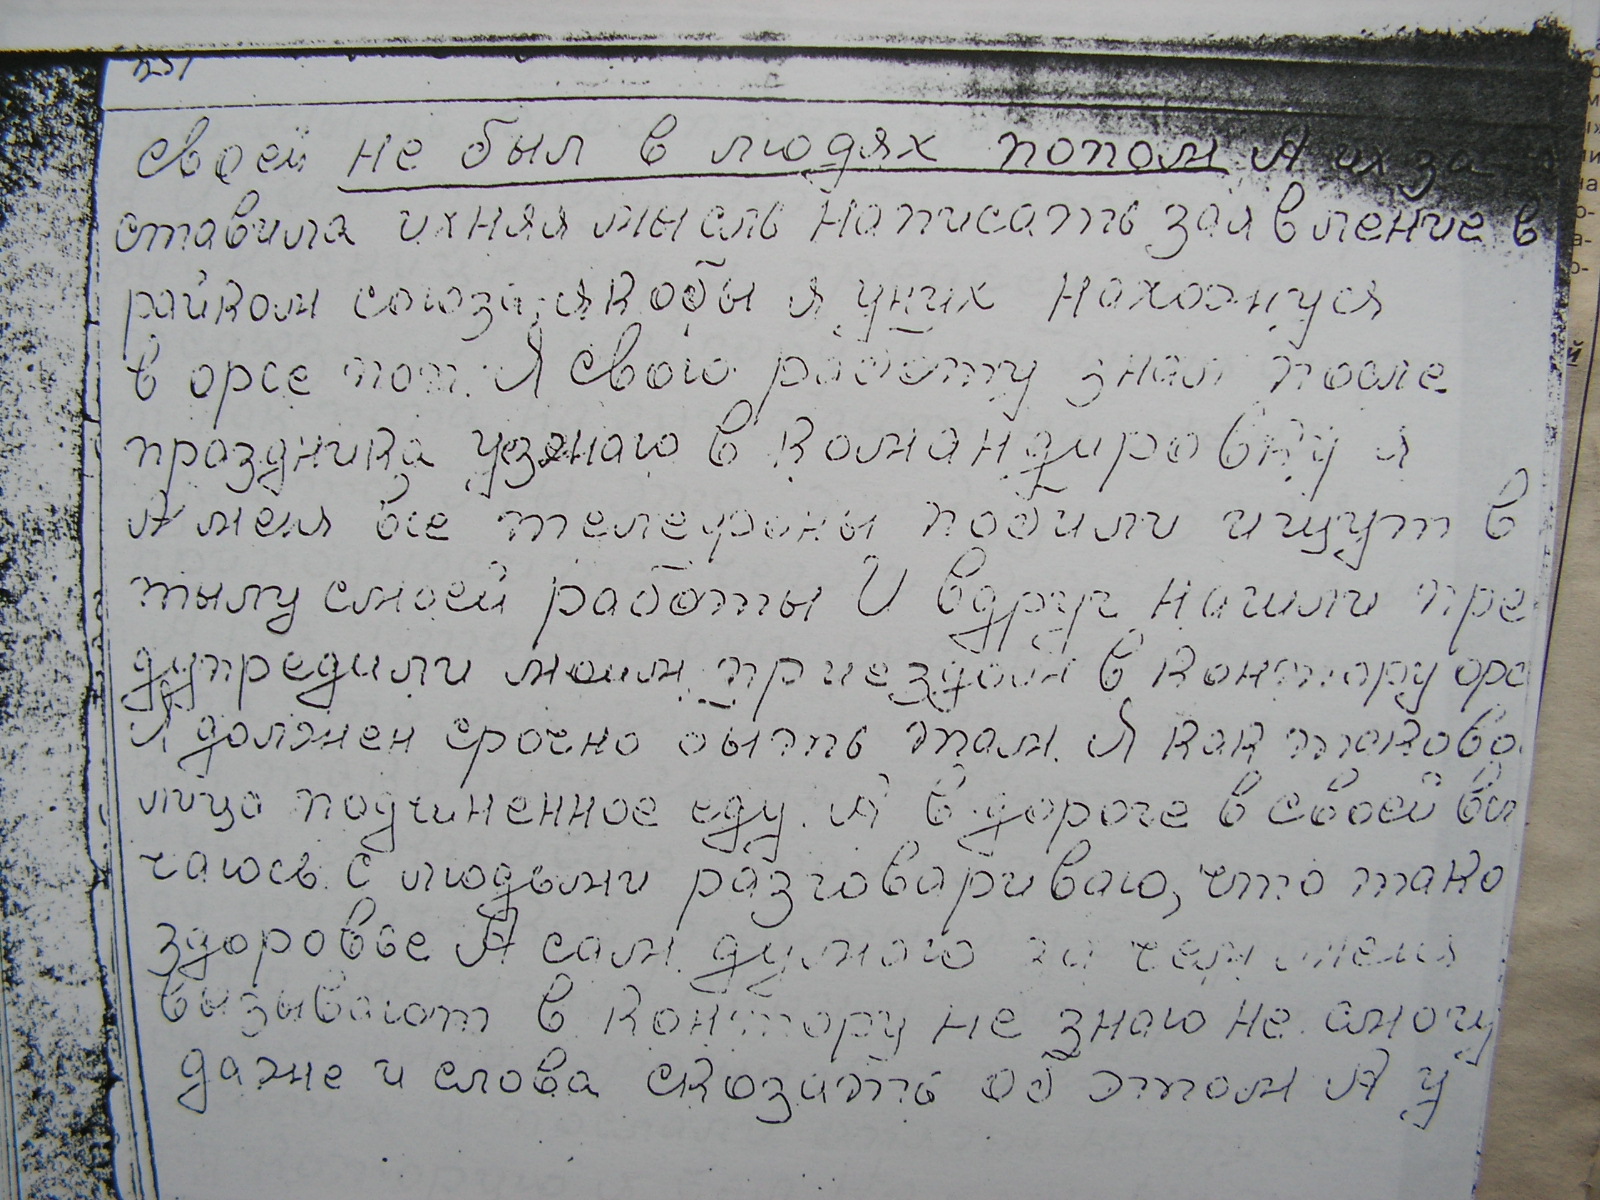 231
своей не был в людях попом А их за
ставила ихняя мысль написать заявление в
райком союза, якобы я у них нахожуся
в орсе поп. Я свою работу знал после
праздника уезжаю в командировку я
А меня все телефоны побили ищут в
тылу смоей работы И вдруг нашли пре
дупредили моим приездом в контору орс
Я должен срочно быть там. Я как таково
лицо подчиненное еду. А в дороге в своей
чаюсь. С людьми разговариваю, что тако
здоровье А сам думаю за чем меня
вызывают в контору не знаю не смогу
даже и слова сказать об этом А у